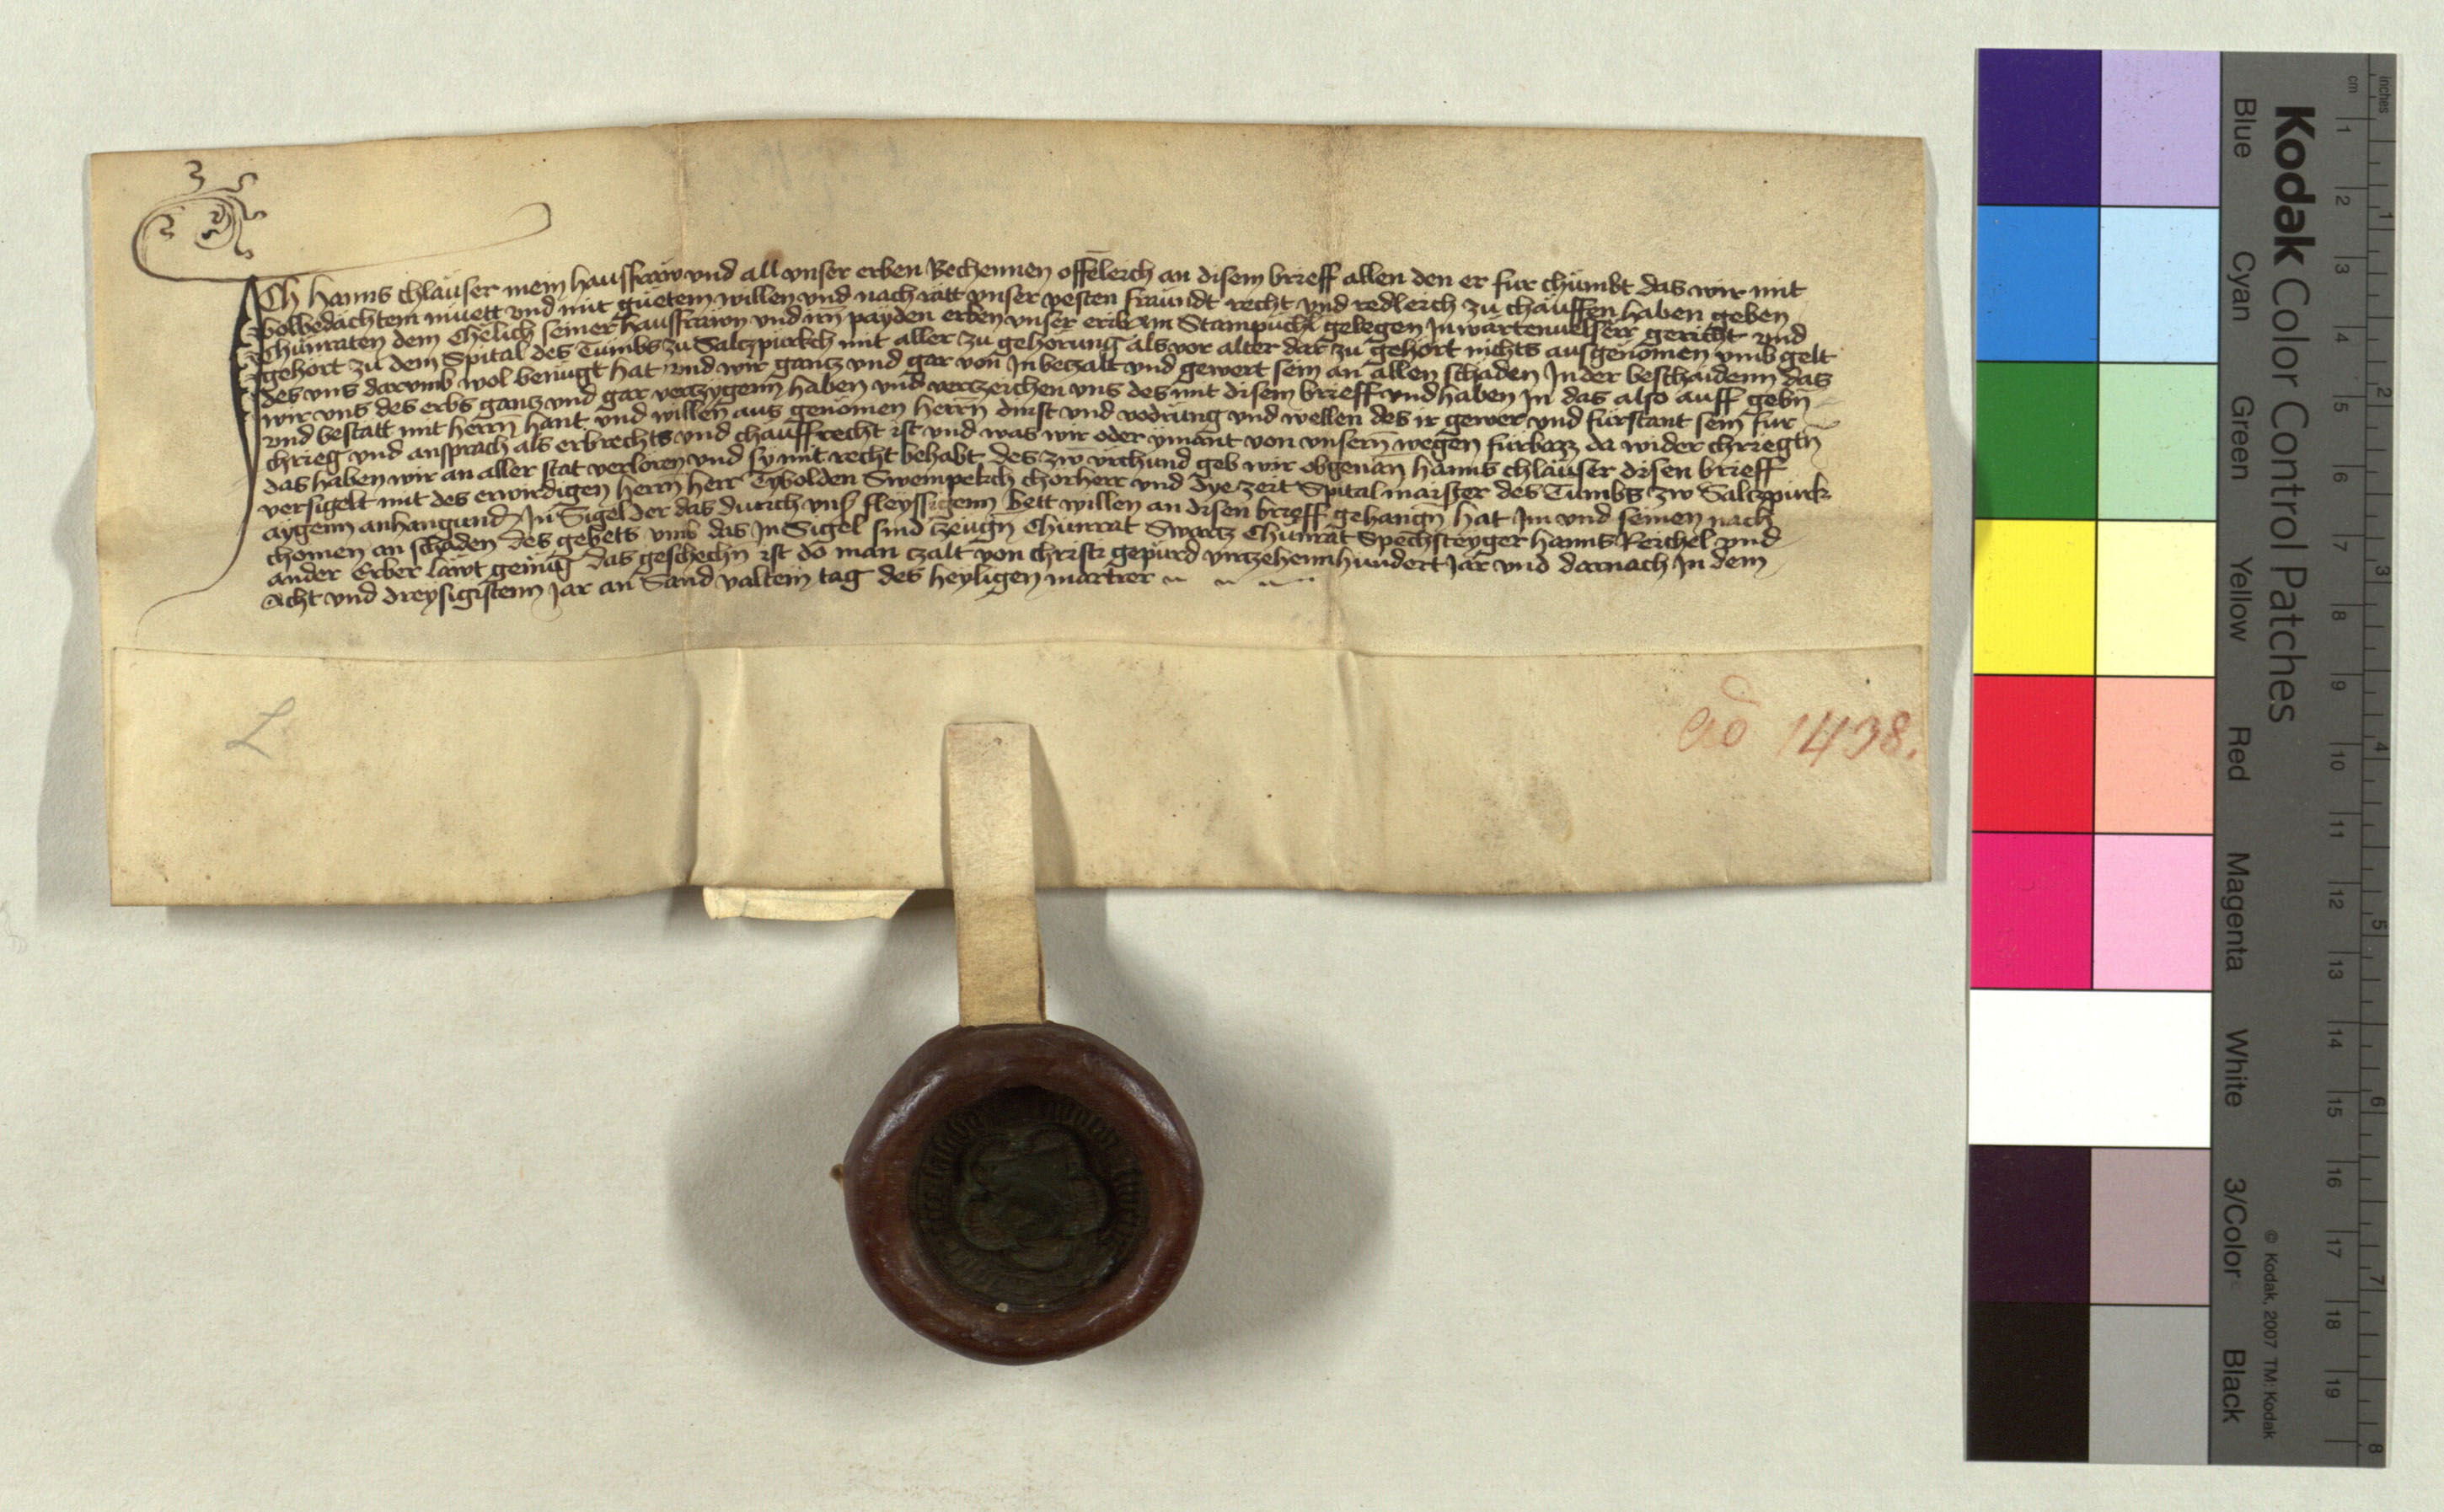 Ich Hanns chläuser mein hausfraw und all unser erben Bechennen offenleich an disem brieff allen den er fur chumbt das wir mit
wolbedachtem muett und mit guetem willen und nach ratt unser pesten fraundt recht und redleich zu chauffen haben geben
Chunraten dem Chelich seiner hausfrawn und irn payden erben unser erib am Stampuchl gelegen in wartenvelser gericht und
gehort zu dem Spital des Tumbs zu Saltzpurkch mit aller zu gehorung als vor alter dar zu gehort nichts ausgenomen umb gelt
des uns darumb wol benugt hat und wir gantz und gar von In betzalt und gewert sein an allen schaden In der beschaidenn das
wir uns des erbs gantz und gar vertzygenn haben und vertzeichen uns des mit disem brieff und haben In das also auff gebn
und bestatt mit herrn hant und willen aus genomen herrn dinst und vodrung und wellen des ir gewer und furstant sein fur
chrieg und ansprach als erbrechts und chauffrecht ist und was wir oder ymant von unsern wegen furbazz da wider chriegtn
das haben wir an aller stat verloren und sy mit recht behabt des zw urchund geb wir obgenan hanns chläuser disen brieff
versigelt mit des erwirdigen herrn herr Tybolden Swempekch chorherr und Dye zeit Spitalmaister des Tumbs zw Saltzpurk
aygenn anhangund In Sigel Der das durich uns fleyssigenn Bett willen an disen brieff gehangn hat Im und seinen nach
chomen an schaden des gebets umb das In Sigel sind tzeugn Chunrat Swartz Chunrat Spechsteyger hanns Reichel und
ander Erber lawt genug das geschechn ist do man tzalt von christi gepurd virzehennhundert Jar und darnach In dem
Acht und dreysigistenn Jar an Sand valtein tag des heyligen martrer
L
ao 1438.
Kodak Color Control Patches
Blue Cyan Green Yellow Red Magenta White 3/Color Black
© Kodak, 2007 TM: Kodak
inches 1 2 3 4 5 6 7 8
cm 1 2 3 4 5 6 7 8 9 10 11 12 13 14 15 16 17 18 19